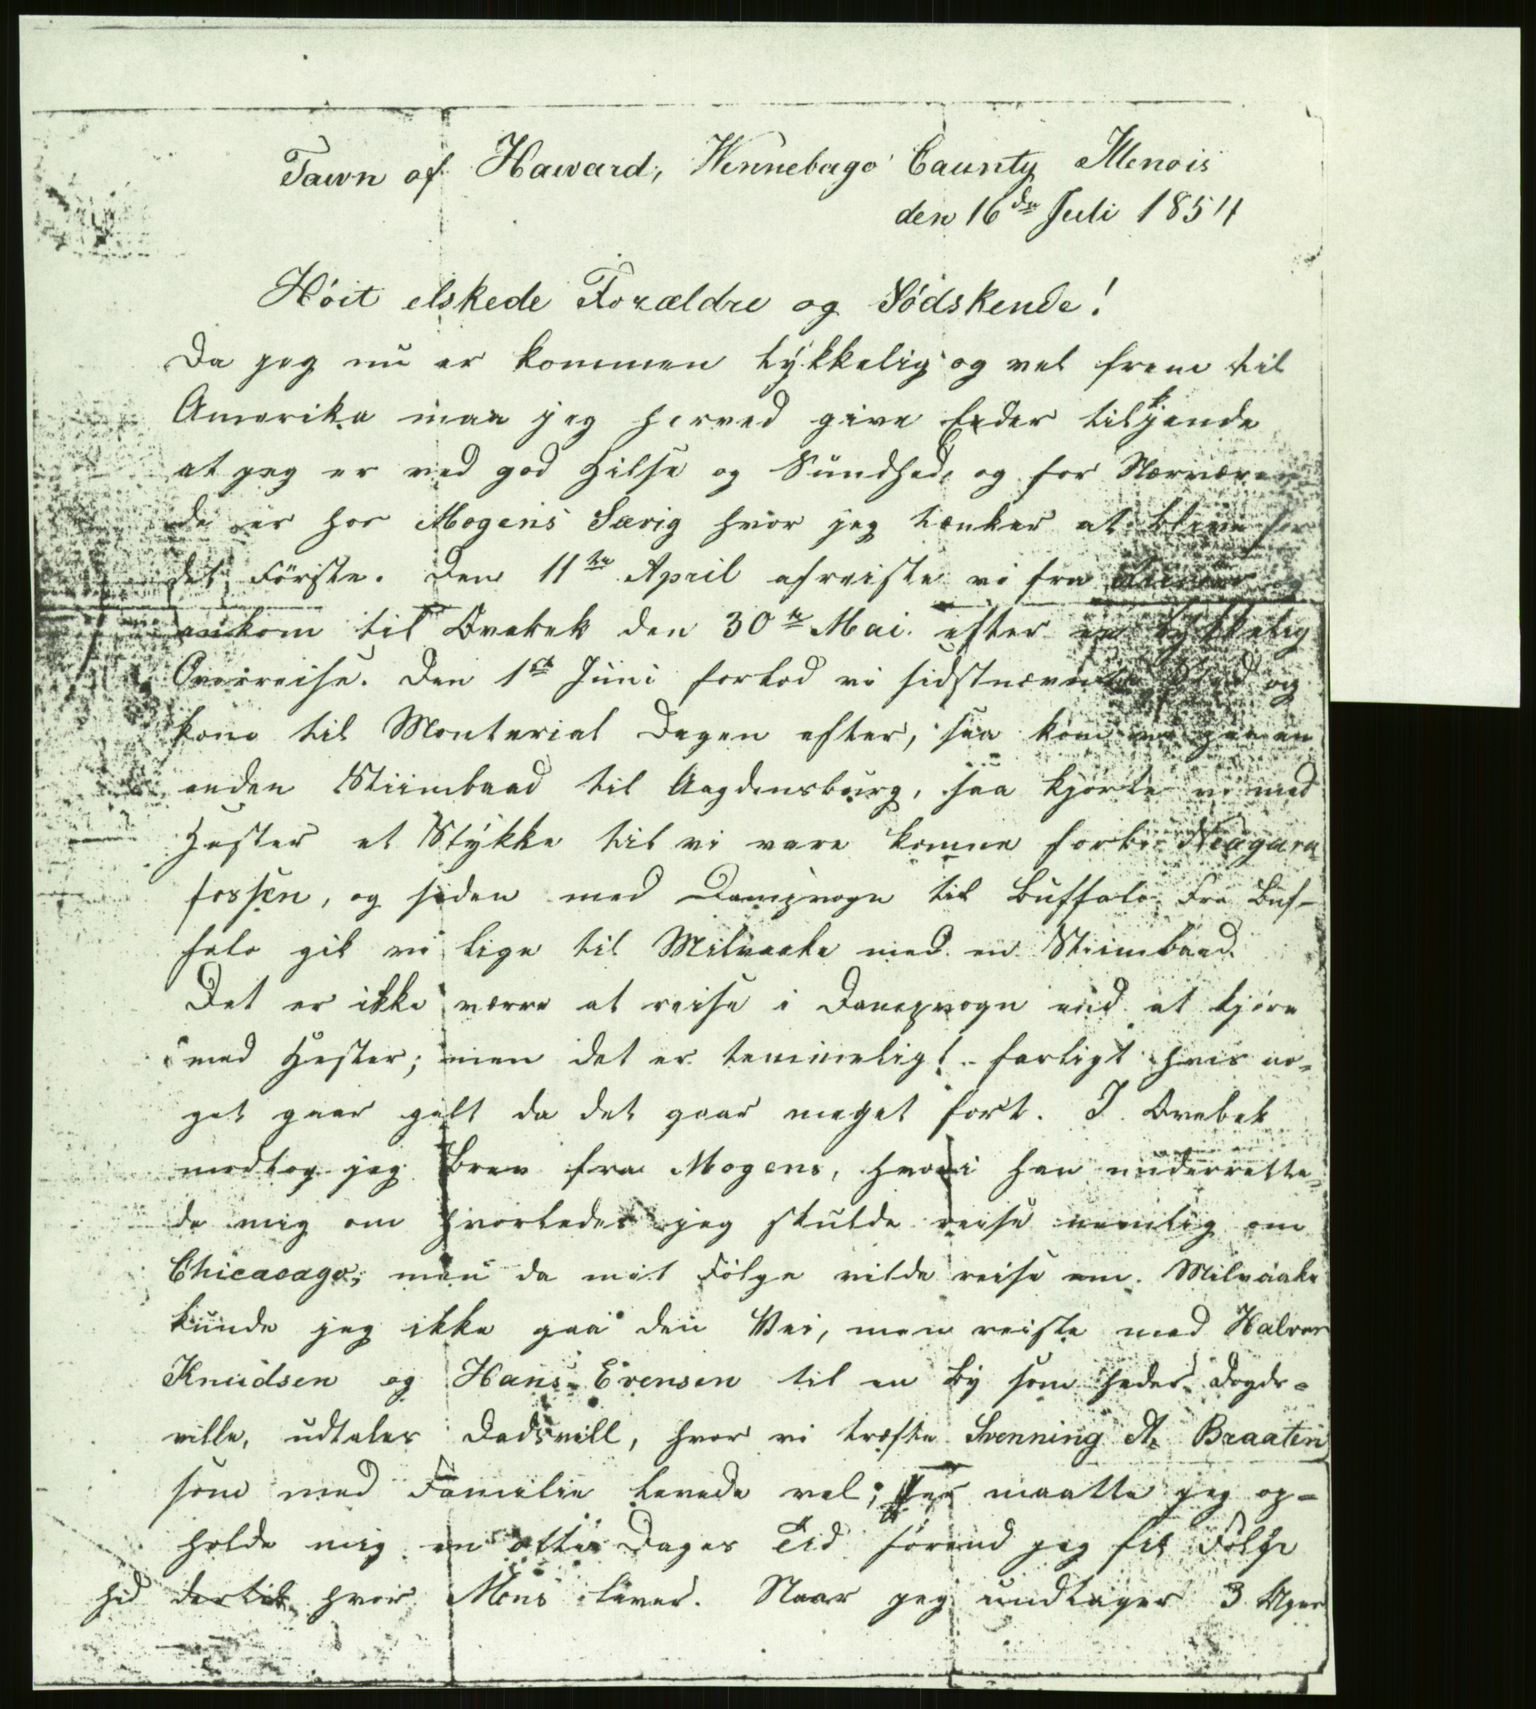 Tawn of Haward, Wennebago Caunty Illenois
den 16de Juli 1854
Höit elskede Forældre og Södskende!
Da jeg nu er kommen lykkelig og vel frem til
Amerika maa jeg herved give Eder tilkjende
at jeg er ved god Hilse og Sundhed, og for Nærværen
de er hos Mogens Særig hvor jeg tænker at blive for
det Förste. Den 11te April afreiste vi fra
ankom til Qvebek den 30te Mai efter en lykkelig
Overreise. Den 1ste Juni forlod vi sidstnævnte Sted og
kom til Monterial Dagen efter, saa kom vi paa en
anden Stiimbaad til Aagdensburg, saa kjørte vi med
Hester et Stykke til vi vare komne forbi Neagara
fossen, og siden med Dampvogn til Buffalo. Fra Buf-
falo gik vi lige til Milvaake med en Stiimbaad.
Det er ikke værre at reise i Dampvogn end at kjøre
med Hester; men det er temmeligt farligt hvis no-
get gaar galt da det gaar meget fort. I Qvebek
modtog jeg Brev fra Mogens, hvori han underrette-
de mig om hvorledes jeg skulde reise nemlig om
Chicacago, men da mit Fölge vilde reise om Milvaake
kunde jeg ikke gaa den Vei, men reiste med Halvor
Knudsen og Hans Evensen til en By som heder Dogds-
ville, udtales Dadsvill, hvor vi træfte Svenning A. Braaten
som med Familie levede vel; her maatte jeg op-
holde mig en otte Dages Tid förend jeg fik Fölge
hid dertil hvor Mons lever. Naar jeg undtager 3 Uger